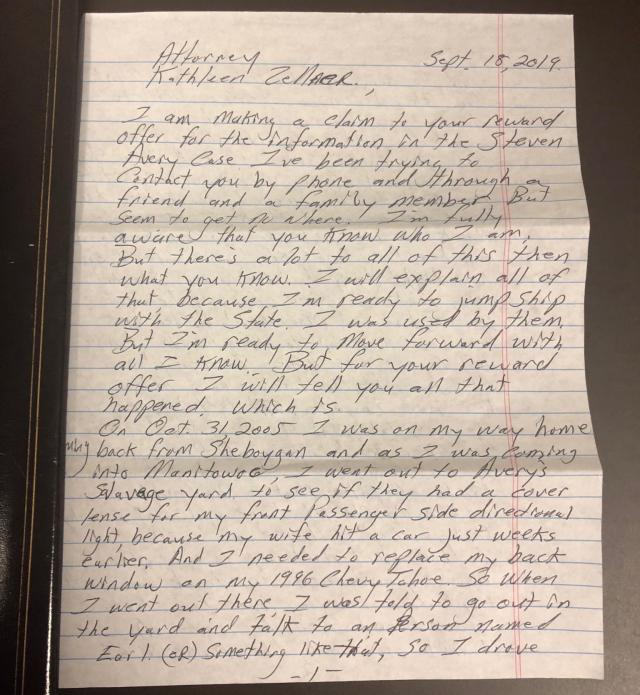 Attorney Sept. 18, 2019.
Kathleen Zellner,
I am making a claim to your reward
offer for the information in the Steven
Avery Case I've been trying to
Contact you by phone and through a
friend and a family member But
seem to get no where. I'm fully
aware that you know who I am,
But there's a lot to all of this then
what you know. I will explain all of
that because I'm ready to jump ship
with the State. I was used by them,
But I'm ready to Move forward with
all I know. But for your reward
offer I will tell you all that
happened. Which is.
On Oct. 31, 2005 I was on my way home
my back from Sheboygan and as I was coming
into Manitowoc, I went out to Avery's
Slavage yard, to see if they had a cover
lense for my front Passenger side directional
light, because my wife hit a car just weeks
earlier, And I needed to replace my back
window on my 1996 Chevy Tahoe. So when
I went out there I was told to go out in
the yard and talk to an Person named
Earl. (OR) Something like that, So I drove
-1-